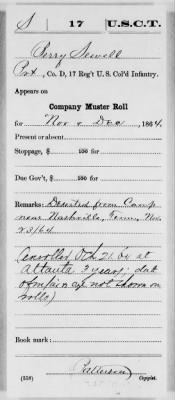 S | 17 | U.S.C.T.
Perry Sewell
Pvt, Co. D, 17 Reg't U. S. Col'd Infantry.
Appears on
Company Muster Roll
for Nov & Dec, 1864.
Present or absent
Stoppage, $ 100 for
Due Gov't, $ 100 for
Remarks: Deserted from Camp
near Nashville, Tenn, Nov
23/64
Enrolled Oct 21 64 at
Atlanta 3 years; date
of
not shown on
rolls)
Book mark:
(358)
Copyist.